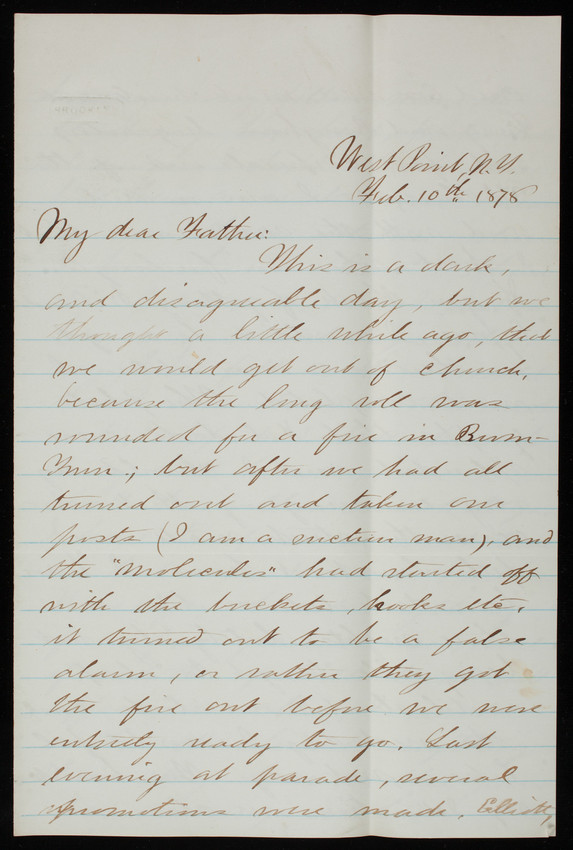 West Point, N.Y.
Feb. 10th 1878
My dear Father:
This is a dark,
and disagreeable day, but we
thought a little while ago, that
we would get out of church,
because the long roll was
sounded for a fire in Rum-
Trum; but after we had all
turned out and taken our
posts (I am a suction man), and
the "molecules" had started off
with the buckets, hooks etc.
it turned out to be a false
alarm, or rather they got
the fire out before we were
entirely ready to go. Last
evening at parade, several
promotions were made. Elliott,